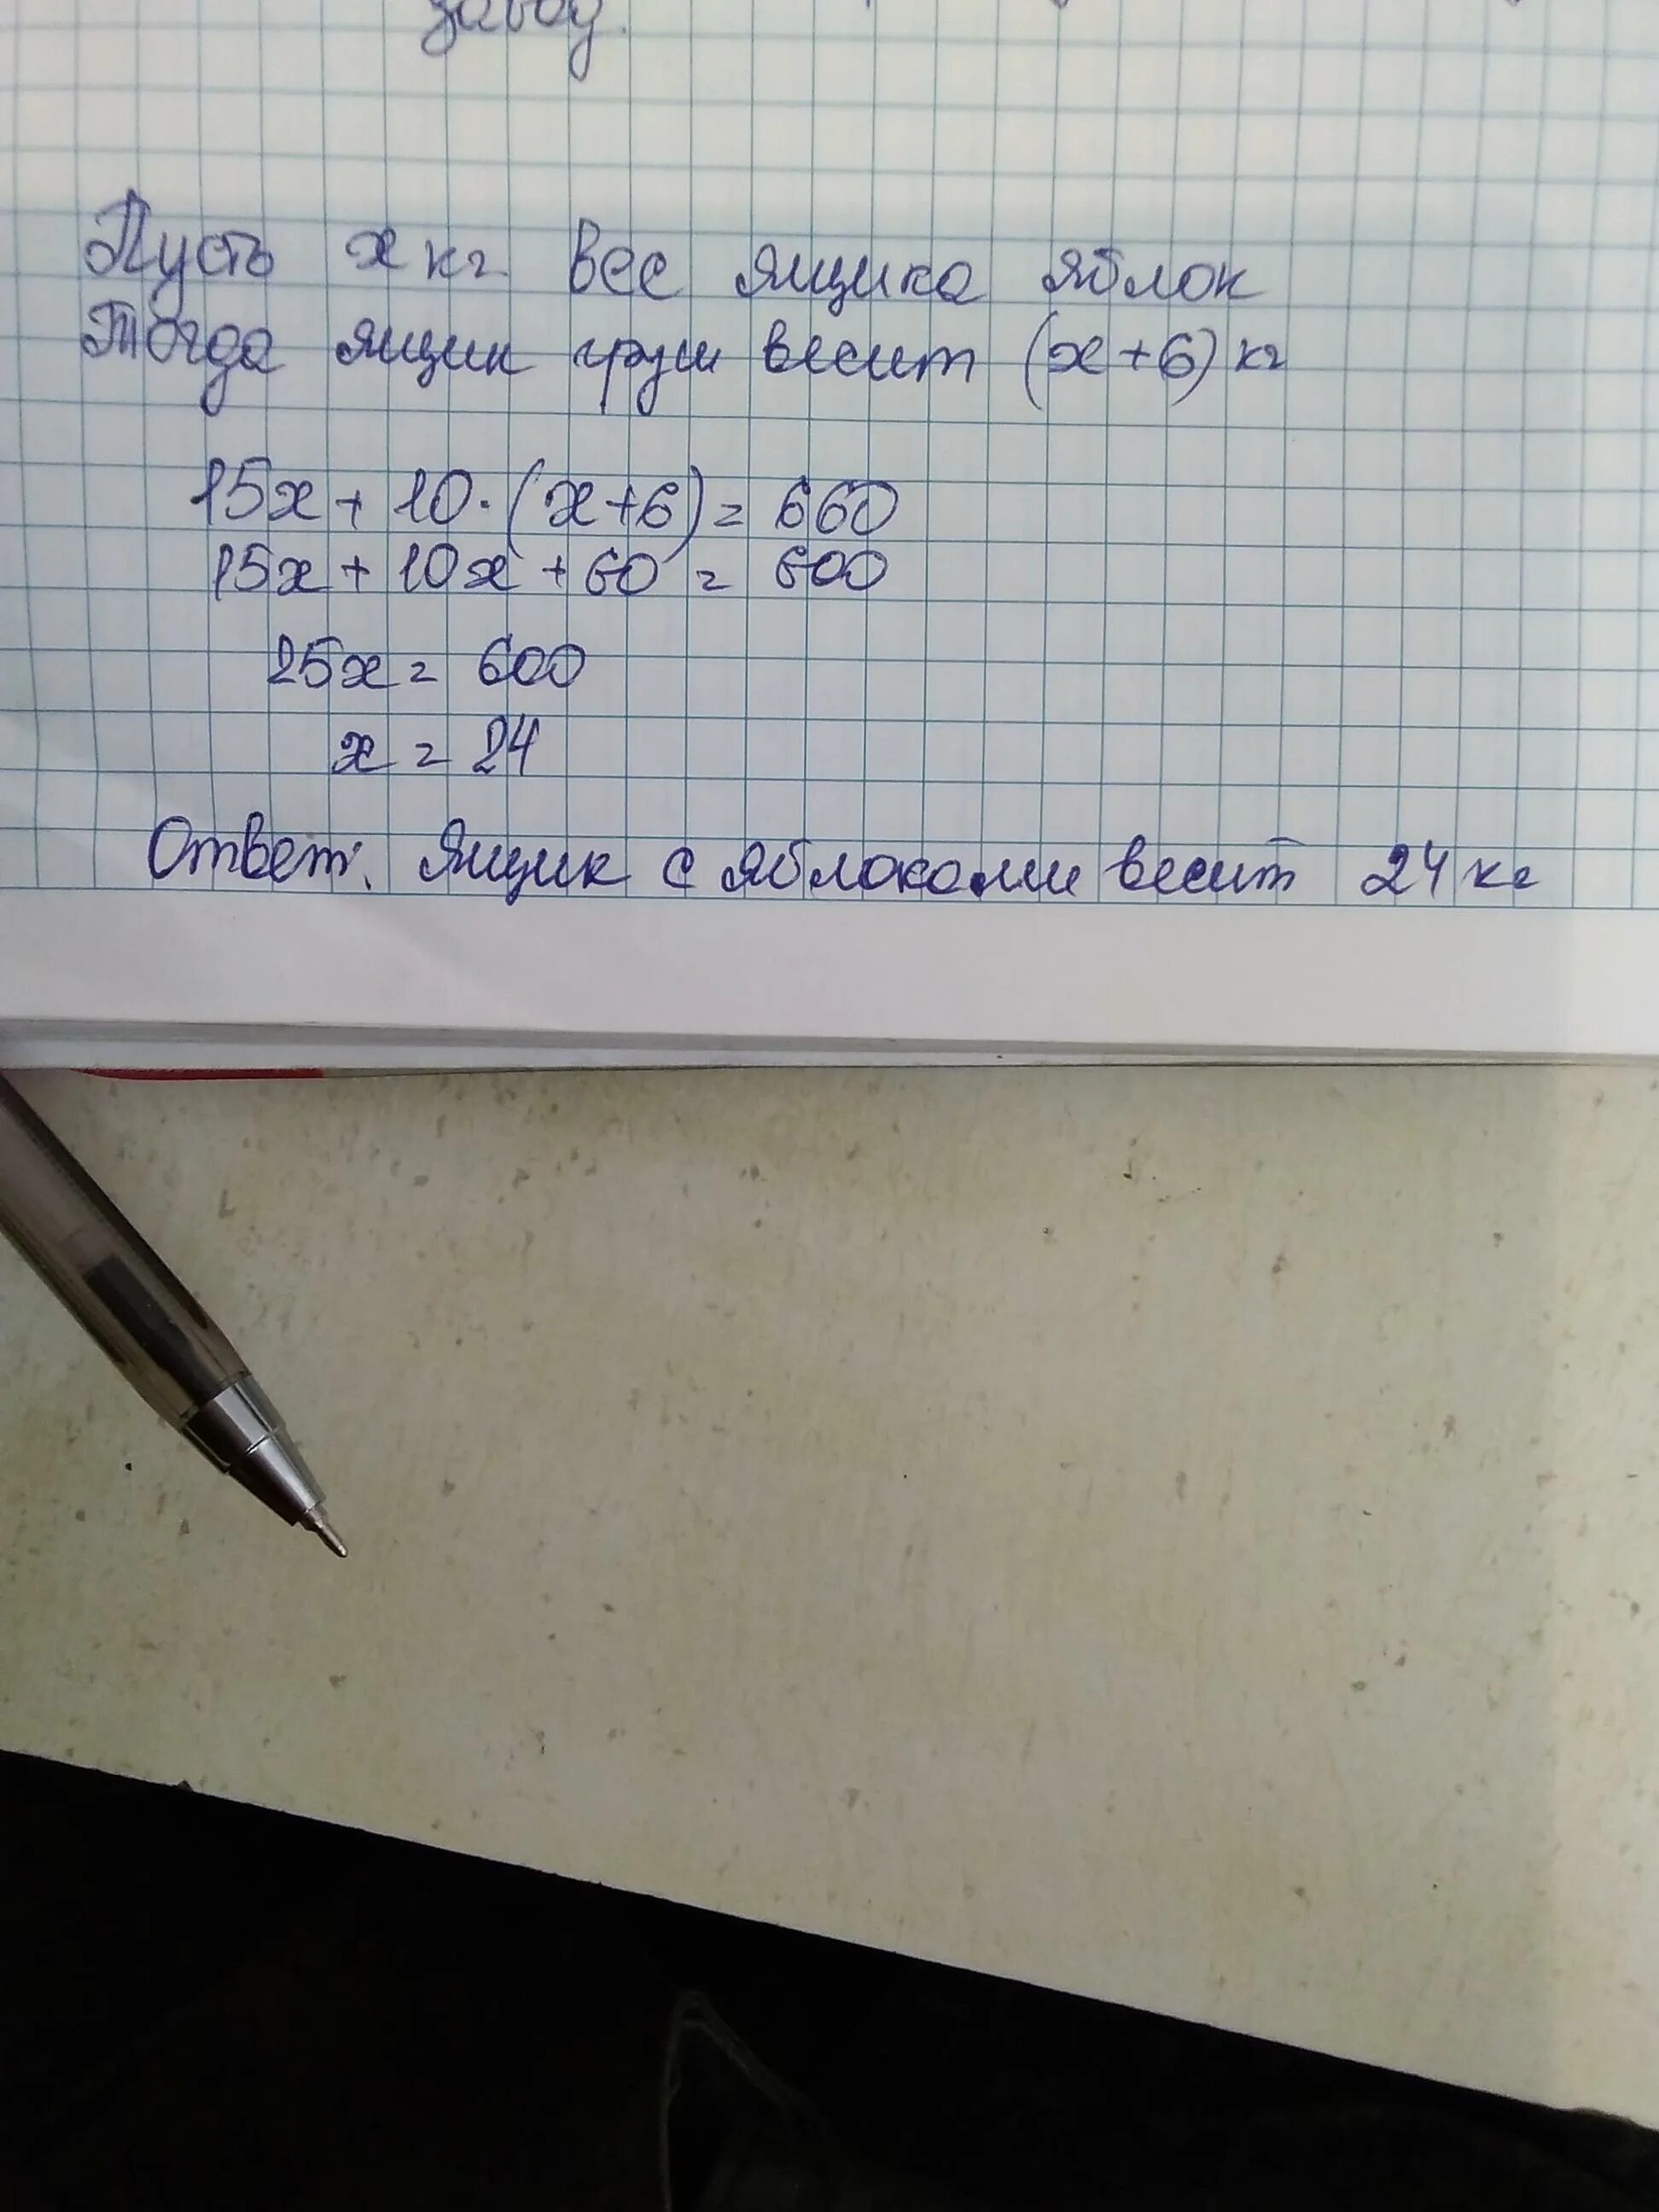 завод.
Пусть x кг вес ящика яблок
Тогда ящик груш весит (x+6) кг
15x + 10·(x+6) = 660
15x + 10x + 60 = 600
25x = 600
x = 24
Ответ. Ящик с яблоками весит 24 кг